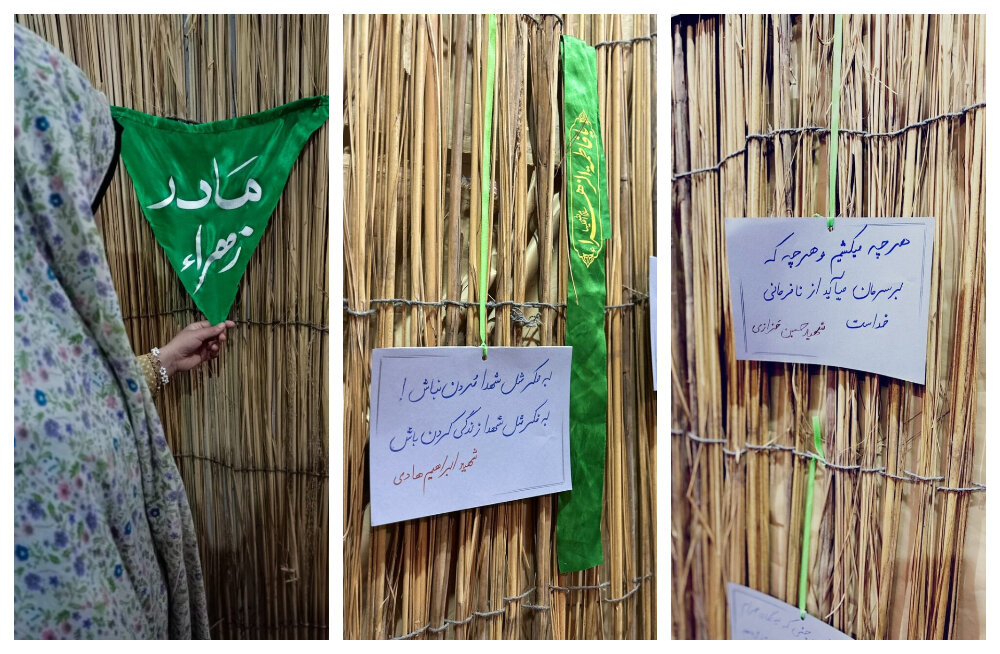 مادر
زهراء
یا فاطمة الزهراء
به فکر مثل شهدا مُردن نباش !
به فکر مثل شهدا زندگی کردن باش
شهید ابراهیم هادی
هر چه میکشیم و هر چه که
بر سرمان می‌آید از نافرمانی
خداست
شهید حسین خرازی